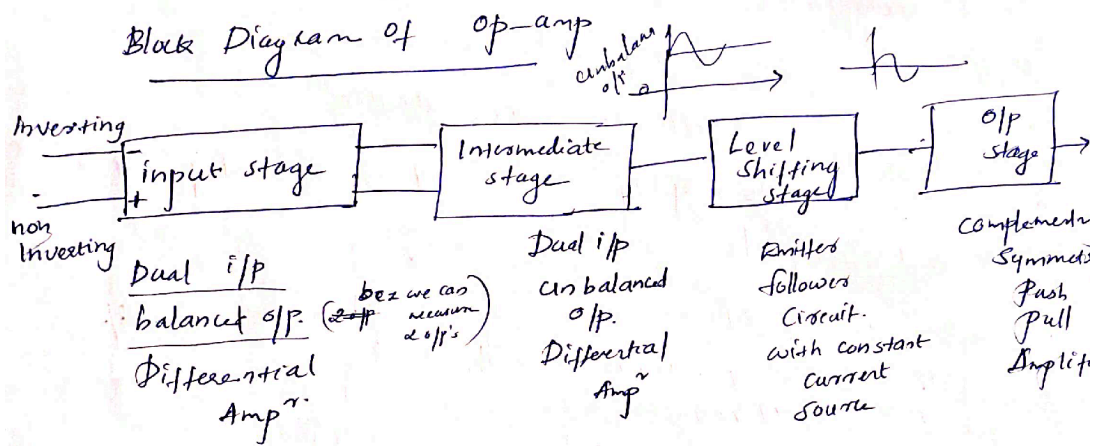 Block Diagram of op-amp
unbalan
o/p
0
Inverting
-
input stage
+
non
Inverting
Intermediate
stage
Level
Shifting
stage
o/p
stage
Dual i/p
balanced o/p. (bez we can
measure
2 o/p's)
Differential
Ampr.
Dual i/p
unbalanced
o/p.
Differential
Ampr
Emitter
follower
Circuit.
with constant
current
source
Complementa
Symmet
Push
pull
Amplif